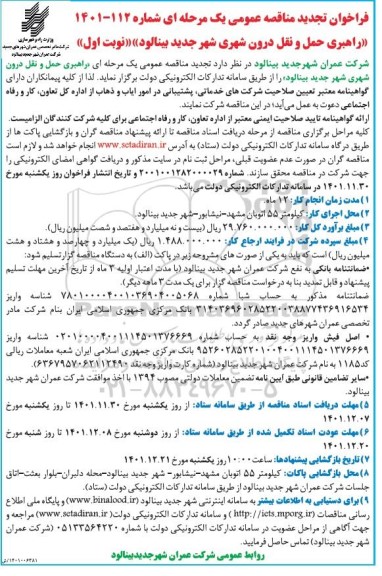 وزارت راه و شهرسازی
فراخوان تجدید مناقصه عمومی یک مرحله ای شماره ۱۱۲-۱۴۰۱
«راهبری حمل و نقل درون شهری شهر جدید بینالود» «نوبت اول»
شرکت عمران شهرجدید بینالود در نظر دارد تجدید مناقصه عمومی یک مرحله ای راهبری حمل و نقل درون
شهری شهر جدید بینالود» را از طریق سامانه تدارکات الکترونیکی دولت برگزار نماید. لذا از کلیه پیمانکاران دارای
گواهینامه معتبر تعیین صلاحیت شرکت های خدماتی، پشتیبانی در امور ایاب و ذهاب از اداره کل تعاون، کار و رفاه
اجتماعی دعوت به عمل می‌آید؛ در این مناقصه شرکت نمایند.
ارائه گواهینامه تایید صلاحیت ایمنی معتبر از اداره تعاون، کار و رفاه اجتماعی برای کلیه شرکت کنندگان الزامیست.
کلیه مراحل برگزاری مناقصه از مرحله دریافت اسناد مناقصه تا ارائه پیشنهاد مناقصه گران و بازگشایی پاکت ها از
طریق درگاه سامانه تدارکات الکترونیکی دولت (ستاد) به آدرس www.setadiran.ir انجام خواهد شد و لازم است
مناقصه گران در صورت عدم عضویت قبلی، مراحل ثبت نام در سایت مذکور و دریافت گواهی امضای الکترونیکی را
جهت شرکت در مناقصه محقق سازند. شماره ۲۰۰۱۰۰۱۲۸۲۰۰۰۰۲۹ و تاریخ انتشار فراخوان روز یکشنبه مورخ
۱۴۰۱.۱۱.۳۰ در سامانه تدارکات الکترونیکی دولت می‌باشد.
۱) مدت زمان انجام کار: ۱۲ ماه.
۲) محل اجرای کار: کیلومتر ۵۵ اتوبان مشهد-نیشابور-شهر جدید بینالود.
۳) مبلغ برآورد کل کار: ۲۹.۷۶۰.۰۰۰.۰۰۰ ریال (بیست و نه میلیارد و هفتصد و شصت میلیون ریال).
۴) مبلغ سپرده شرکت در فرایند ارجاع کار: ۱.۴۸۸.۰۰۰.۰۰۰ ریال (یک میلیارد و چهارصد و هشتاد و هشت
میلیون ریال) است که باید به یکی از صورت های مشروحه زیر در پاکت (الف) به دستگاه مناقصه گزار تسلیم شود:
*ضمانتنامه بانکی به نفع شرکت عمران شهر جدید بینالود (با مدت اعتبار اولیه ۳ ماه از تاریخ آخرین مهلت تسلیم
پیشنهاد و قابل تمدید بنا به درخواست مناقصه گزار برای یک مدت ۳ ماهه دیگر).
تخصصی عمران شهرهای جدید صادر گردد.
*سایر تضامین قانونی طبق آیین نامه تضمین معاملات دولتی مصوب ۱۳۹۴ با اخذ موافقت شرکت عمران شهر جدید
بینالود.
۵) مهلت دریافت اسناد مناقصه از طریق سامانه ستاد: از روز یکشنبه مورخ ۱۴۰۱.۱۱.۳۰ تا روز یکشنبه مورخ
۱۴۰۱.۱۲.۰۷
۶) مهلت عودت اسناد تکمیل شده از طریق سامانه ستاد: از روز دوشنبه مورخ ۱۴۰۱.۱۲.۰۸ تا روز شنبه مورخ
۱۴۰۱.۱۲.۲۰
۷) تاریخ بازگشایی پیشنهادها: ساعت ۱۰:۰۰ روز یکشنبه مورخ ۱۴۰۱.۱۲.۲۱
۸) محل بازگشایی پاکات: کیلومتر ۵۵ اتوبان مشهد-نیشابور- شهر جدید بینالود-محله دلبران-بلوار بعثت-اتاق
جلسات شرکت عمران شهر جدید بینالود.
۹) برای دستیابی به اطلاعات بیشتر به سامانه اینترنتی شهر جدید بینالود (www.binalood.ir) و پایگاه ملی اطلاع
رسانی مناقصات (http://iets.mporg.ir) و سامانه تدارکات الکترونیکی دولت (www.setadiran.ir) مراجعه و
جهت آگاهی از مراحل عضویت در سامانه تدارکات الکترونیکی دولت با شماره ۰۵۱۳۳۵۶۴۲۲۰ (شرکت عمران
شهر جدید بینالود) تماس حاصل فرمایید.
روابط عمومی شرکت عمران شهرجدیدبینالود